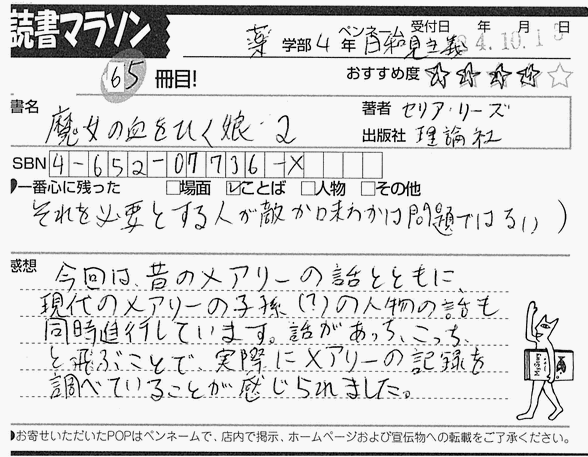 読書マラソン
薬 学部 4 年 ペンネーム 日和見主義 受付日 年 月 日
4.10.1
65 冊目! おすすめ度 ★★★★☆
書名 魔女の血をひく娘 2
著者 セリア・リーズ
出版社 理論社
ISBN 4-652-07736-X
一番心に残った □場面 ☑ことば □人物 □その他
それを必要とする人が敵か味方かは問題ではない)
感想
今回は、昔のメアリーの話とともに、
現代のメアリーの子孫(?)の人物の話も
同時進行しています。話があっち、こっち、
と飛ぶことで、実際にメアリーの記録を
調べていることが感じられました。
●お寄せいただいたPOPはペンネームで、店内で掲示、ホームページおよび宣伝物への転載をご了承ください。